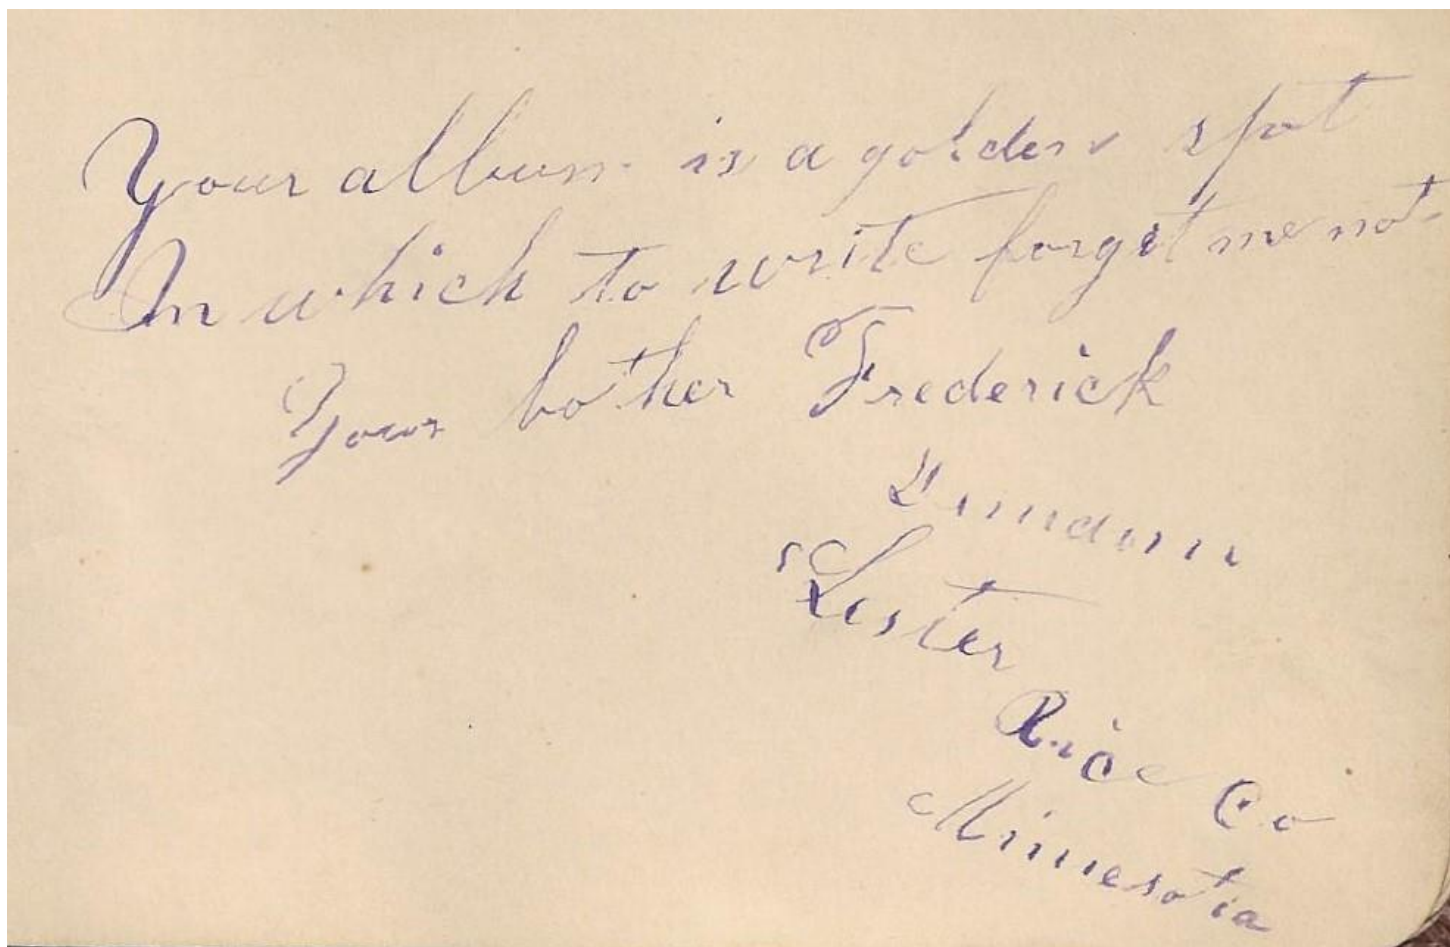 Your album is a golden spot
In which to write forget me not
Yours bother Frederick
Lester
Rice Co
Minnesotia